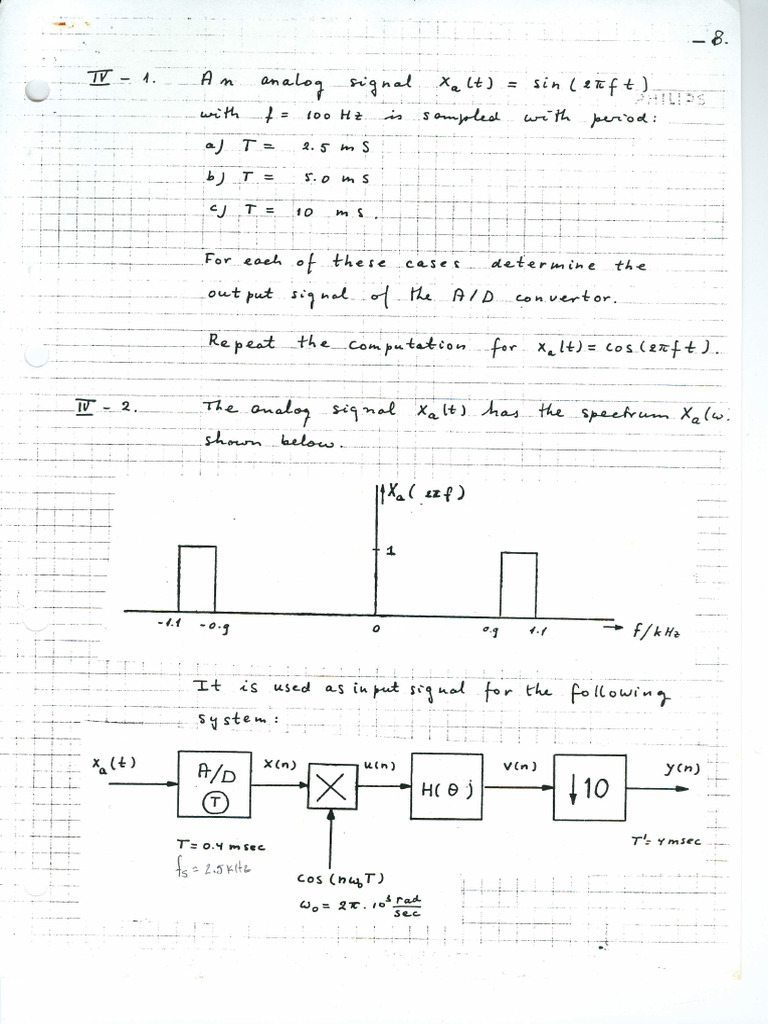 - 8.
IV - 1. An analog signal xa(t) = sin(2πft)
PHILIPS
with f = 100 Hz is sampled with period:
a) T = 2.5 mS
b) T = 5.0 mS
c) T = 10 mS.
For each of these cases determine the
output signal of the A/D convertor.
Repeat the computation for xa(t) = cos(2πft).
IV - 2. The analog signal xa(t) has the spectrum Xa(ω.
shown below.
Xa(2πf)
1
-1.1 -0.9 0 0.9 1.1 f/kHz
It is used as input signal for the following
system:
xa(t) A/D T x(n) × u(n) H(θ) v(n) ↓10 y(n)
T = 0.4 msec
T' = 4 msec
fs = 2.5kHz
cos(nω0T)
ω0 = 2π.10³ rad/sec